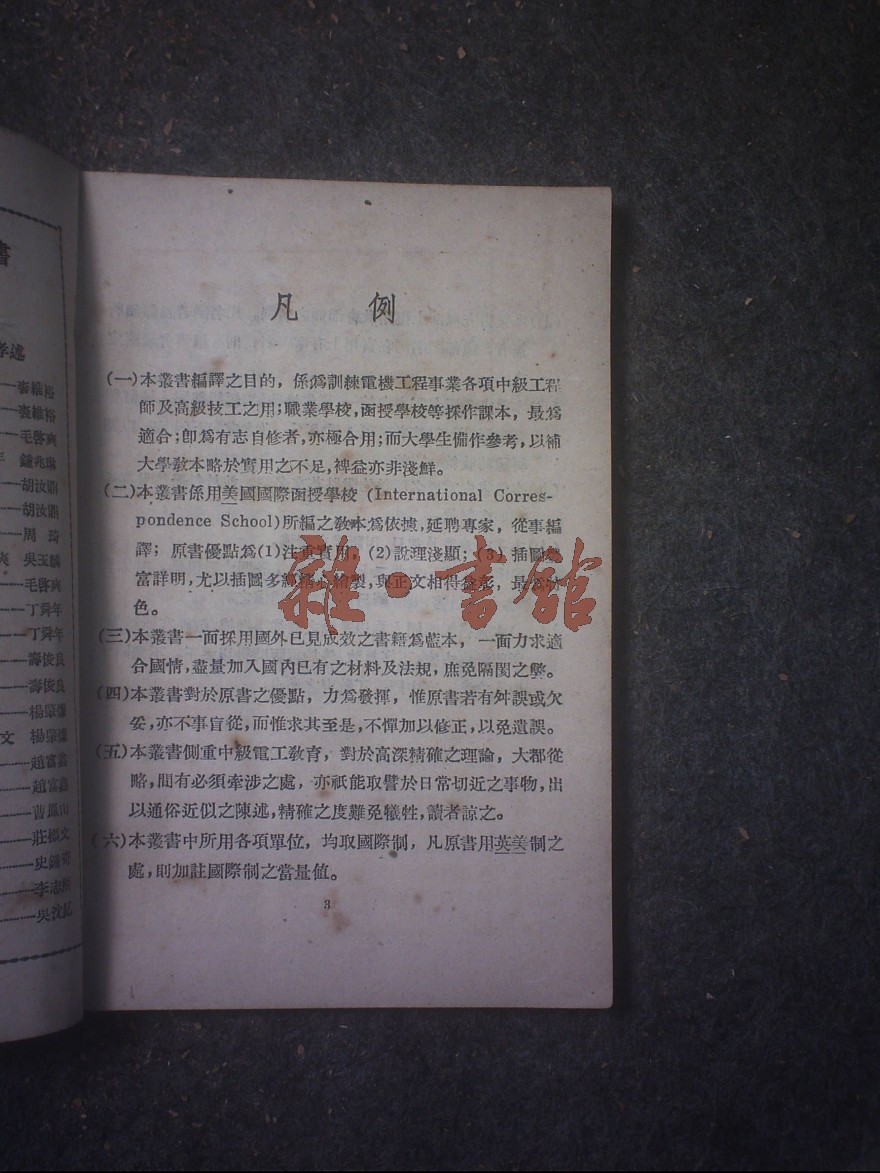 凡例
(一)本叢書編譯之目的，係爲訓練電機工程事業各項中級工程
師及高級技工之用；職業學校，函授學校等採作課本，最爲
適合；卽爲有志自修者，亦極合用；而大學生備作參考，以補
大學教本略於實用之不足，裨益亦非淺鮮。
(二)本叢書係用美國國際函授學校 (International Corres-
pondence School)所編之教本爲依據，延聘專家，從事編
譯；原書優點爲(1)注重實用，(2)說理淺顯；(3)插圖
富詳明，尤以插圖多經精心繪製，與正文相得益彰，最爲
色。
(三)本叢書一面採用國外已見成效之書籍爲藍本，一面力求適
合國情，盡量加入國內已有之材料及法規，庶免隔閡之弊。
(四)本叢書對於原書之優點，力爲發揮，惟原書若有舛誤或欠
妥，亦不事盲從，而惟求其至是，不憚加以修正，以免遺誤。
(五)本叢書側重中級電工教育，對於高深精確之理論，大都從
略，間有必須牽涉之處，亦祇能取譬於日常切近之事物，出
以通俗近似之陳述，精確之度難免犧牲，讀者諒之。
(六)本叢書中所用各項單位，均取國際制，凡原書用英美制之
處，則加註國際制之當量値。
3
雜·書館
書
述
麥維裕
麥維裕
毛啓爽
鍾兆琳
胡汝鼎
胡汝鼎
周琦
吳玉麟
毛啓爽
丁舜年
丁舜年
壽俊良
壽俊良
楊肇燫
文 楊肇燫
趙富鑫
趙富鑫
曹鳳山
莊標文